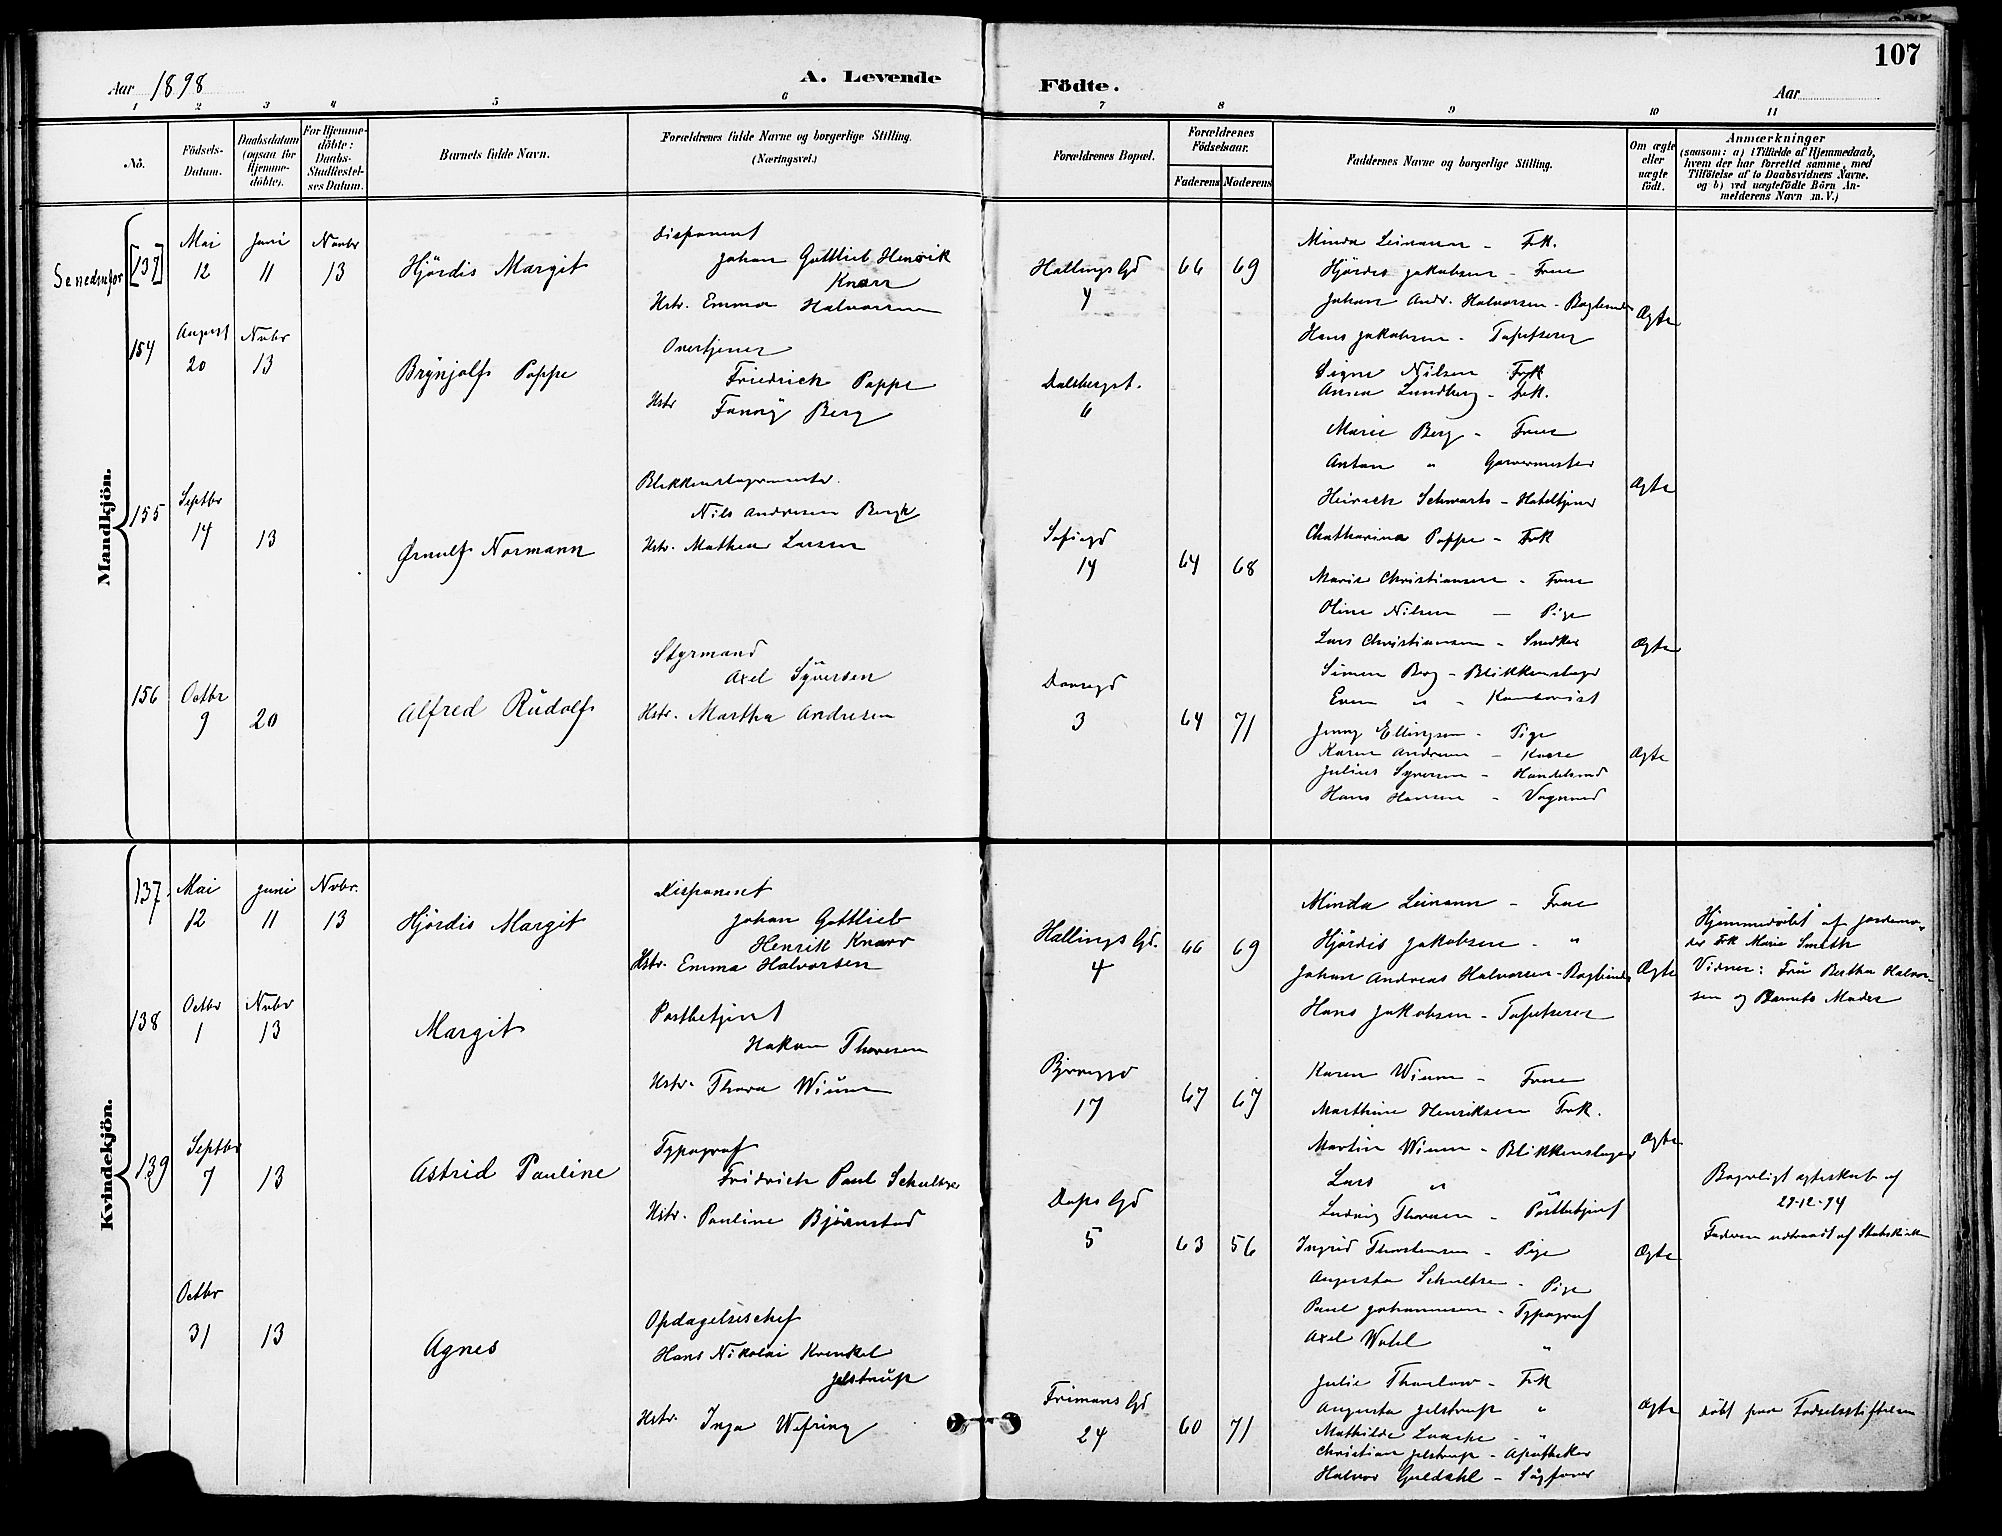 107
Aar 1898
A. Levende Födte.
Aar
1 2 3 4 5 6 7 8 9 10 11
Nö.
Födsels-Datum.
Daabsdatum (ogsaa for Hjemme-döbte).
For Hjemme-döbte: Daabs-Stadfæstel-ses Datum.
Barnets fulde Navn.
Forældrenes fulde Navne og borgerlige Stilling. (Næringsvei.)
Forældrenes Bopæl.
Forældrenes Födselsaar.
Faderens Moderens
Faddernes Navne og borgerlige Stilling.
Om ægte eller uægte födt.
Anmærkninger
(saasom: a) i Tilfælde af Hjemmedaab,
hvem der har forrettet samme, med
Tilföielse af to Daabsvidners Navne.
og b) ved uægtefödte Börn An-
melderens Navn m. V.)
Mandkjön.
Se nedenfor [137] Mai 12 Juni 11 Novbr 13
Hjördis Margit
Disponent
Johan Gottlieb Henrik
Knarr
Hstr. Emma Halvorsen
Hallings Gd 4
66 69
Minda Leinann - Frk.
Hjördis Jakobsen - Frue
Johan Andr. Halvorsen - Bogbinder
Hans Jakobsen - Tapetserer
Ægte
154 August 20 Nvbr 13
Brynjolf Poppe
Overtjener
Friedrich Poppe
Hstr Fanny Berg
Dalsbergst. 6
Signe Nilsen Frk
Anna Lundberg - Frk.
Marie Berg - Frue
Anton " Garvermester
Heinrich Schwarts - Hoteltjener
Chatharina Poppe - Frk
Ægte
155 Septbr 14 13
Ørnulf Normann
Blikkenslagermester
Nils Andresen Bergh
Hstr. Mathea Larsen
Sofiegd 14
64 68
Marie Christiansen - Frue
Oline Nilsen - Pige
Lars Christiansen - Snedker
Simen Berg - Blikkenslager
Even " - Kontorist
Ægte
156 Octbr 9 20
Alfred Rudolf
Styrmand
Axel Syversen
Hstr. Martha Andresen
3
64 71
Jenny Ellingsen - Pige
Karen Andresen - Kone
Julius Syversen - Handelsmd
Hans Hansen - Vognmd
Ægte
Kvindekjön.
137 Mai 12 Juni 11 Nvbr. 13
Hjördis Margit
Disponent
Johan Gottlieb
Henrik Knarr
Hstr. Emma Halvorsen
Hallings Gd. 4
66 69
Minda Leinann - Frue
Hjördis Jakobsen - "
Johan Andreas Halvorsen - Bogbinder
Hans Jakobsen - Tapetserer
Ægte
Hjemmedöbt af Jordemo-
der Frk Marie Smith
Vidner: Fru Bertha Halvor-
sen og Barnets Moder
138 Octbr 1 Nvbr 13
Margit
Postbetjent
Hakon Thoresen
Hstr. Thora Wium
17
67 67
Karen Wium - Frue
Marthine Henriksen Frk.
Martin Wium - Blikkenslager
Lars "
Ludvig Thoresen - Postbetjent
Ægte
139 Septbr 7 13
Astrid Pauline
Typograf
Fridrich Paul Schultze
Hstr. Pauline Björnstad
Dops Gd 5
63 56
Ingrid Thorstensen - Pige
Augusta Schultze - Pige
Paul Johannesen - Typograf
Axel "
Ægte
Borgerligt ægteskab af
29-12-94
Faderen udtraadt af Statskirken
Octbr 31 13
Agnes
Opdagelseschef
Hans Nikolai Krenkel
Jelstrup
Hstr. Inga Wefring
Frimans Gd 24
60 71
Julie Thaulow - Frk
Augusta Jelstrup "
Mathilde "
Christian Jelstrup - Apotheker
Halvor Guldahl - Sagförer
Ægte
döbt paa Födselsstiftelsen